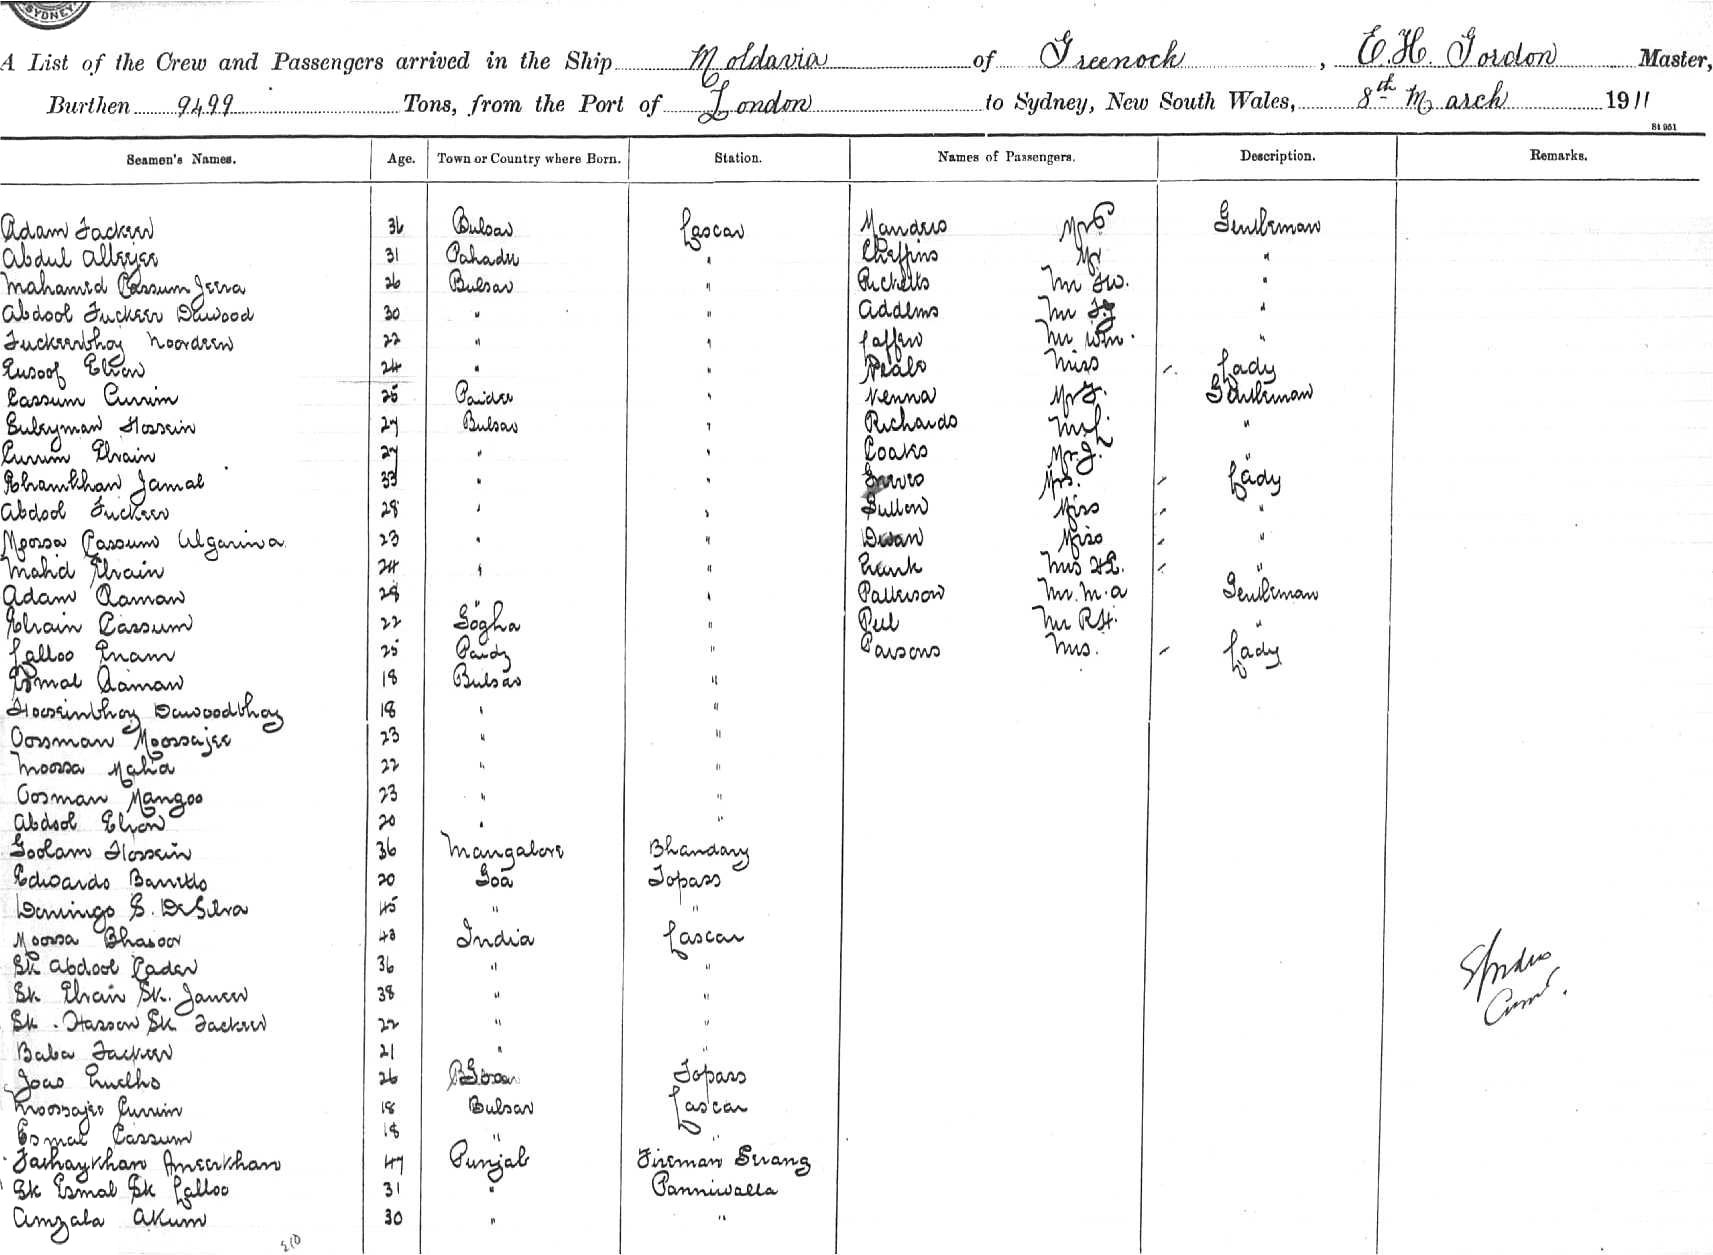 SYDNEY
A List of the Crew and Passengers arrived in the Ship Moldavia of Greenock, E.H. Gordon Master,
Burthen 9499 Tons, from the Port of London to Sydney, New South Wales, 8th March 1911
St 951
Seamen's Names. Age. Town or Country where Born. Station. Names of Passengers. Description. Remarks.
Adam Fackeer 36 Bulsar Lascar Manders Mr Gentleman
Abdul Alleejee 31 Pahadu " Cheffins Mr "
Mahamed Cassum Jeeva 26 Bulsar " Ricketts Mr Fw. "
Abdool Fuckeer Dawood 30 " " Addems Mr "
Fuckeerbhoy Noordeen 22 " " Mr Wm. "
Eusoof Ebram 24 " " Neale Miss Lady
Cassum Currim 25 " Kenna Mr J. Gentleman
Suleyman Hossein 27 Bulsar " Richards Mr "
Currim Ebrain 27 " " Coaks Mr. J. "
Ebramkhan Jamal 33 " " Mrs. Lady
Abdool Fuckeer 28 " " Sutton Miss "
Moosa Cassum Ulgarina 23 " " Miss "
Mahd Ebrain 24 " " Mrs "
Adam Raman 28 " " Patterson Mr. M. A Gentleman
Ebrain Cassum 22 Gogha " Peel Mr R H. "
Lalloo Enam 25 " Parsons Mrs. Lady
Esmal Raman 18 Bulsar "
Hosseinbhoy Dawoodbhoy 18 " "
Oosman Moosajee 23 " "
Moosa Mahd 22 " "
Oosman Mangoo 23 " "
Abdool Ebram 20 " "
Goolam Hossein 36 Mangalore Bhandary
Edwardo Baretto 20 Goa Topass
Domingo S. DeSilva 45 " "
Moosa Bhasoo 43 India Lascar
Sk Abdool Cader 36 " "
Sk Ebrain Sk. Janoo 38 " "
Sk. Hassan Sk Fackeer 22 " "
Baba Fackeer 21 " "
Joao Cuelho 26 Goa Topass
Moosajee Currim 18 Bulsar Lascar
Esmal Cassum 18 " "
Ameerkhan 47 Punjab Fireman Serang
Sk Esmal Sk Lalloo 31 " Panniwalla
Amzala Akum 30 " "
210